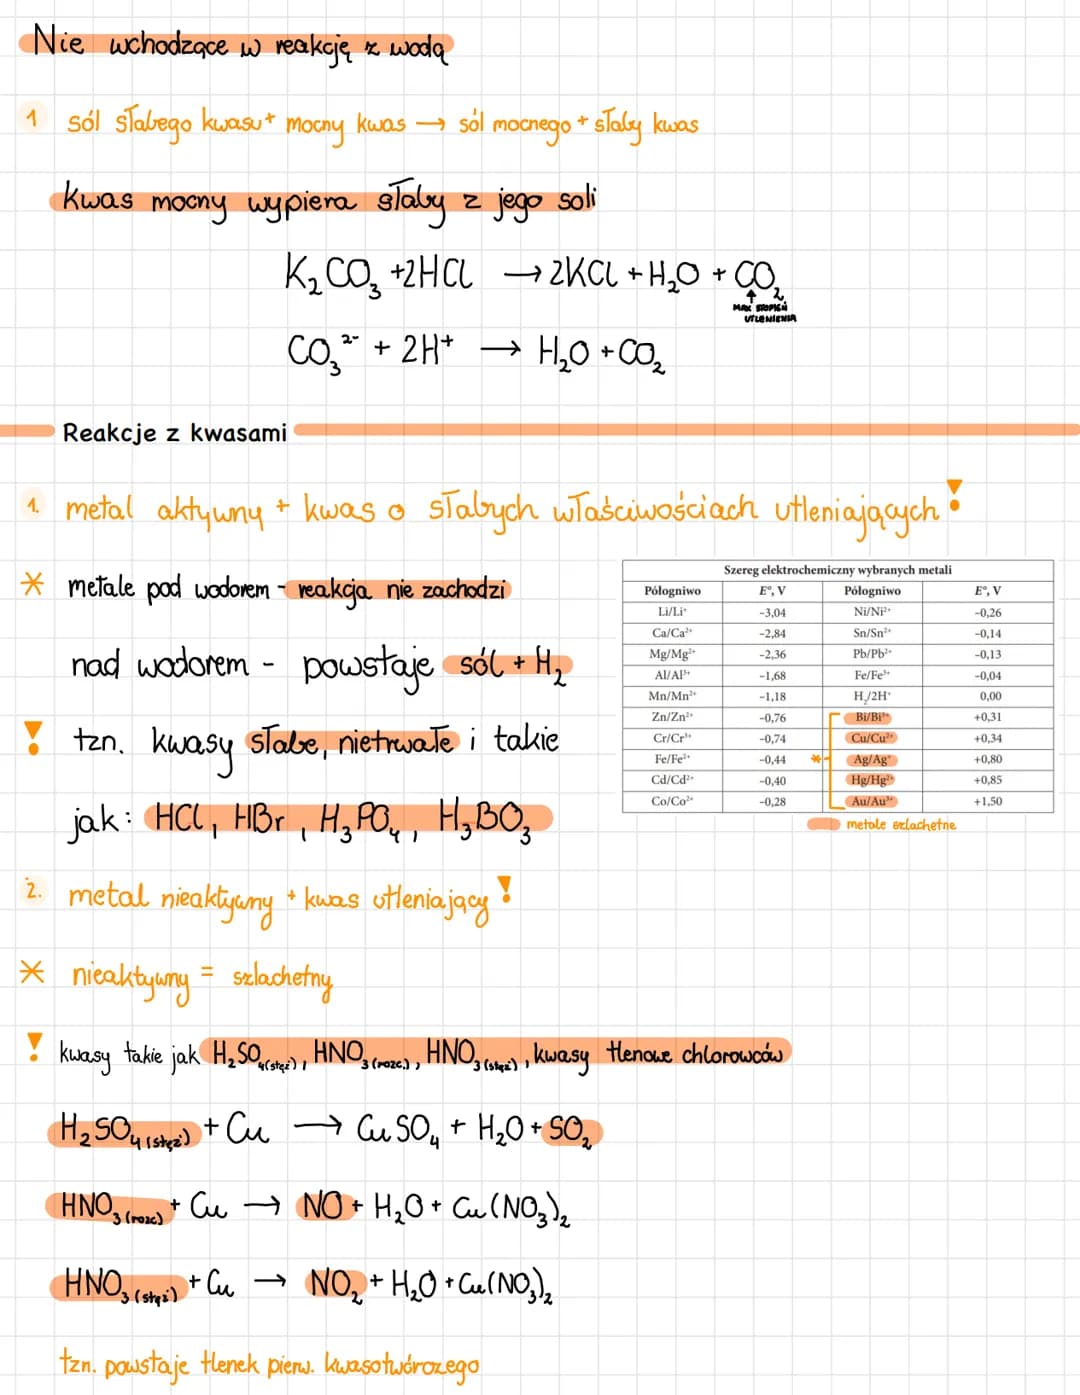 Nie wchodzące w reakcję z wodą
1 sól słabego kwasu + mocny kwas → sól mocnego + słaby kwas
Kwas mocny wypiera słaby z jego soli
K₂CO₃ +2HCl → 2KCl + H₂O + CO₂
↑
MAX STOPIEŃ
UTLENIENIA
CO₃²⁻ + 2H⁺ → H₂O + CO₂
Reakcje z kwasami
1. metal aktywny + kwas o słabych właściwościach utleniających !
* metale pod wodorem - reakcja nie zachodzi
nad wodorem - powstaje sól + H₂
! tzn. kwasy słabe, nietrwałe i takie
jak: HCl, HBr, H₃PO₄, H₃BO₃
Szereg elektrochemiczny wybranych metali
Półogniwo E°, V Półogniwo E°, V
Li/Li⁺ -3,04 Ni/Ni²⁺ -0,26
Ca/Ca²⁺ -2,84 Sn/Sn²⁺ -0,14
Mg/Mg²⁺ -2,36 Pb/Pb²⁺ -0,13
Al/Al³⁺ -1,68 Fe/Fe³⁺ -0,04
Mn/Mn²⁺ -1,18 H₂/2H⁺ 0,00
Zn/Zn²⁺ -0,76 Bi/Bi³⁺ +0,31
Cr/Cr³⁺ -0,74 Cu/Cu²⁺ +0,34
Fe/Fe²⁺ -0,44 * Ag/Ag⁺ +0,80
Cd/Cd²⁺ -0,40 Hg/Hg²⁺ +0,85
Co/Co²⁺ -0,28 Au/Au³⁺ +1,50
metale szlachetne
2. metal nieaktywny + kwas utleniający !
* nieaktywny = szlachetny
! kwasy takie jak H₂SO₄(stęż), HNO₃(rozc.), HNO₃(stęż), kwasy tlenowe chlorowców
H₂SO₄(stęż) + Cu → CuSO₄ + H₂O + SO₂
HNO₃(rozc) + Cu → NO + H₂O + Cu(NO₃)₂
HNO₃(stęż) + Cu → NO₂ + H₂O + Cu(NO₃)₂
tzn. powstaje tlenek pierw. kwasotwórczego